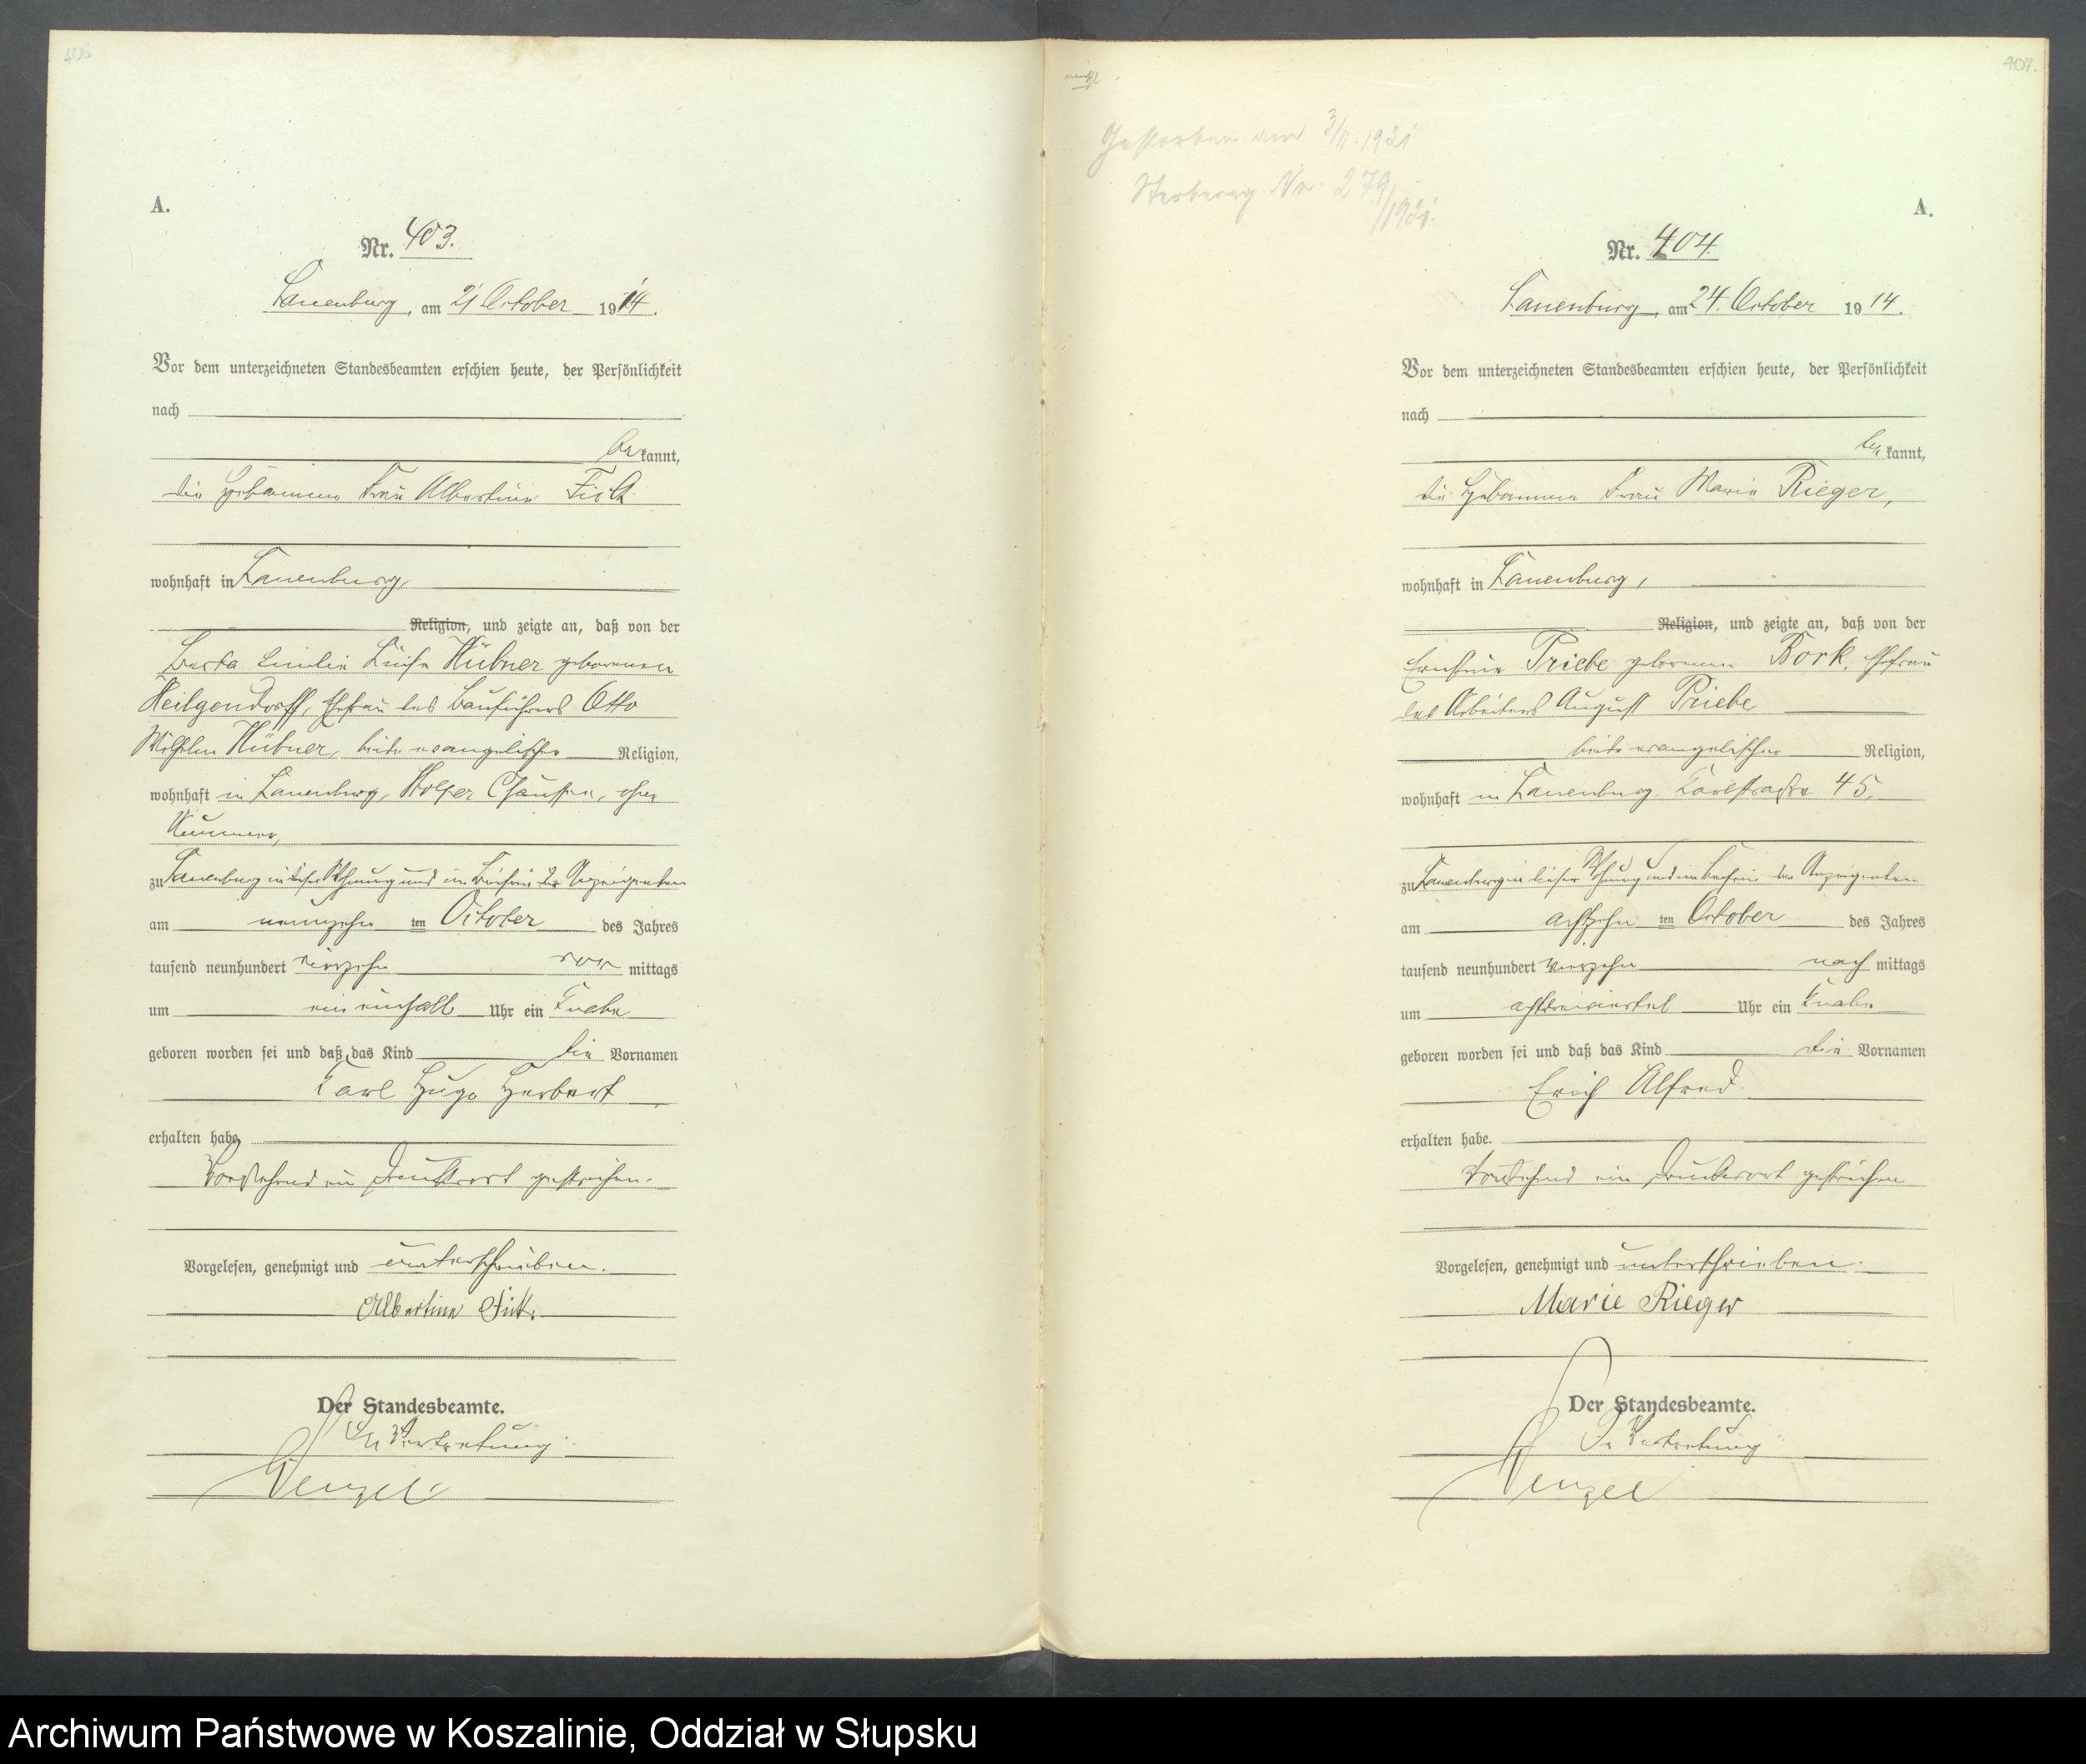 406
A.
Nr. 403.
Lauenburg, am 21 October 1914.
Vor dem unterzeichneten Standesbeamten erschien heute, der Persönlichkeit
nach
be kannt,
die Hebamme Frau Albertine Fick
wohnhaft in Lauenburg,
Religion, und zeigte an, daß von der
Berta Emilie Luise Hübner geborenen
Heilgendorff, Ehefrau des Bauführers Otto
Wilhelm Hübner, beide evangelischer Religion,
wohnhaft in Lauenburg, Chaussee, ohne
Nummer,
zu Lauenburg in dieser Wohnung und im Beisein der Anzeigenden
am neunzehn ten October des Jahres
tausend neunhundert vierzehn vor mittags
um ein einhalb Uhr ein Knabe
geboren worden sei und daß das Kind die Vornamen
Karl Hugo Herbert
erhalten habe
Vorstehend ein Druckwort gestrichen.
Vorgelesen, genehmigt und unterschrieben.
Albertine Fick.
Der Standesbeamte.
In Vertretung
Wenzel
407.
Gestorben am 3/11. 1921
Sterbereg. Nr. 279/1921.
A.
Nr. 404.
Lauenburg, am 24. October 1914.
Vor dem unterzeichneten Standesbeamten erschien heute, der Persönlichkeit
nach
be kannt,
die Hebamme Frau Marie Rieger,
wohnhaft in Lauenburg,
Religion, und zeigte an, daß von der
Ernstine Priebe geborenen Bork, Ehefrau
des Arbeiters August Priebe
beide evangelischer Religion,
wohnhaft in Lauenburg, Karlstraße 45,
zu Lauenburg in dieser Wohnung und im Beisein der Anzeigenden
am achtzehn ten October des Jahres
tausend neunhundert vierzehn nach mittags
um achtdreiviertel Uhr ein Knabe
geboren worden sei und daß das Kind die Vornamen
Erich Alfred
erhalten habe.
Vorstehend ein Druckwort gestrichen
Vorgelesen, genehmigt und unterschrieben.
Marie Rieger
Der Standesbeamte.
In Vertretung
Wenzel
Archiwum Państwowe w Koszalinie, Oddział w Słupsku